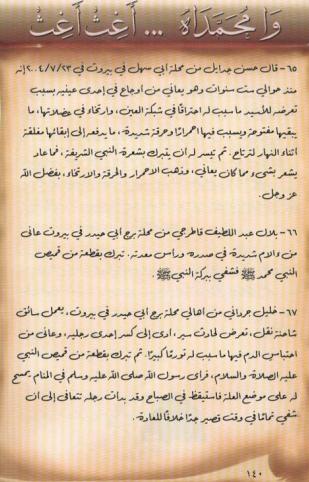 وَا مُحَمَّدَاهُ ... أَغِثْ أَغِثْ
٦٥- قال حسن جدايل من محلة أبي سهل في بيروت في ٢٠٠٤/٧/٢٣ إنه
منذ حوالي ست سنوات وهو يعاني من أوجاع في إحدى عينيه بسبب
تعرضه للأسيد ما سبب له احتراقا في شبكة العين، وارتخاء في عضلاتها، ما
يبقيها مفتوحة ويسبب فيها احمرارًا وحرقة شديدة، ما يدفعه إلى إبقائها مغلقة
أثناء النهار لترتاح. تم تيسر له أن يتبرك بشعرة النبي الشريفة، فما عاد
يشعر بشىء مما كان يعاني، وذهب الاحمرار والحرقة والارتخاء، بفضل الله
عز وجل.
٦٦- بلال عبد اللطيف قاطرجي من محلة برج أبي حيدر في بيروت عانى
من آلام شديدة في صدره ورأس معدته. تبرك بقطعة من قميص
النبي محمد ﷺ فشفي ببركة النبي ﷺ.
٦٧- خليل جرداني من أهالي محلة برج أبي حيدر في بيروت، يعمل سائق
شاحنة نقل، تعرض لحادث سير، أدى إلى كسر إحدى رجليه، وعانى من
احتباس الدم فيها ما سبب له تورمًا كبيرًا. تم تبرك بقطعة من قميص النبي
عليه الصلاة والسلام، فرأى رسول الله صلى الله عليه وسلم في المنام يمسح
له على موضع العلة فاستيقظ في الصباح وقد بدأت رجله تتعافى إلى أن
شفي تمامًا في وقت قصير جدًا خلافًا للعادة.
١٤٠